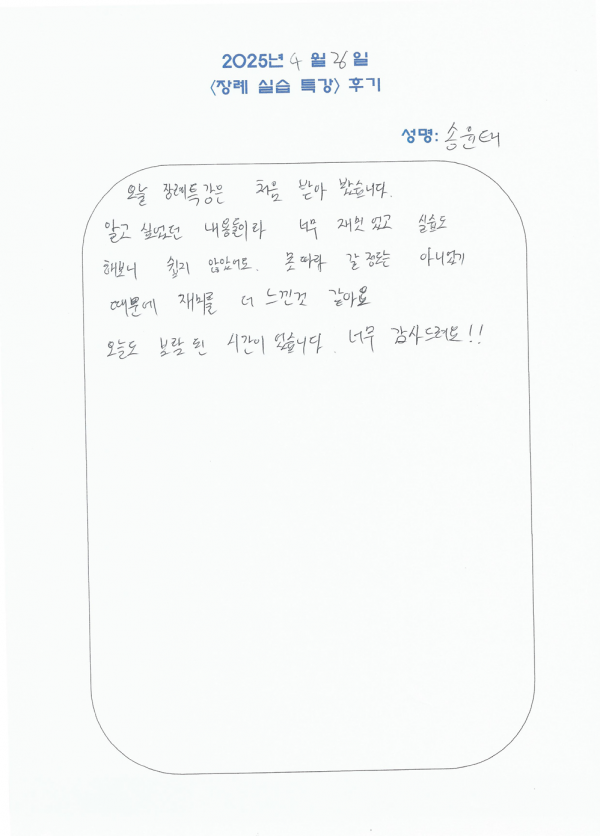 2025년 4월 26일
<장례 실습 특강> 후기
성명: 송윤태
오늘 장례특강은 처음 받아 봤습니다.
알고 싶었던 내용들이라 너무 재밋었고 실습도
해보니 쉽지 않았어요. 못따라 갈 정도는 아니었기
때문에 재미를 더 느낀것 같아요
오늘도 보람 된 시간이 었습니다. 너무 감사드려요!!